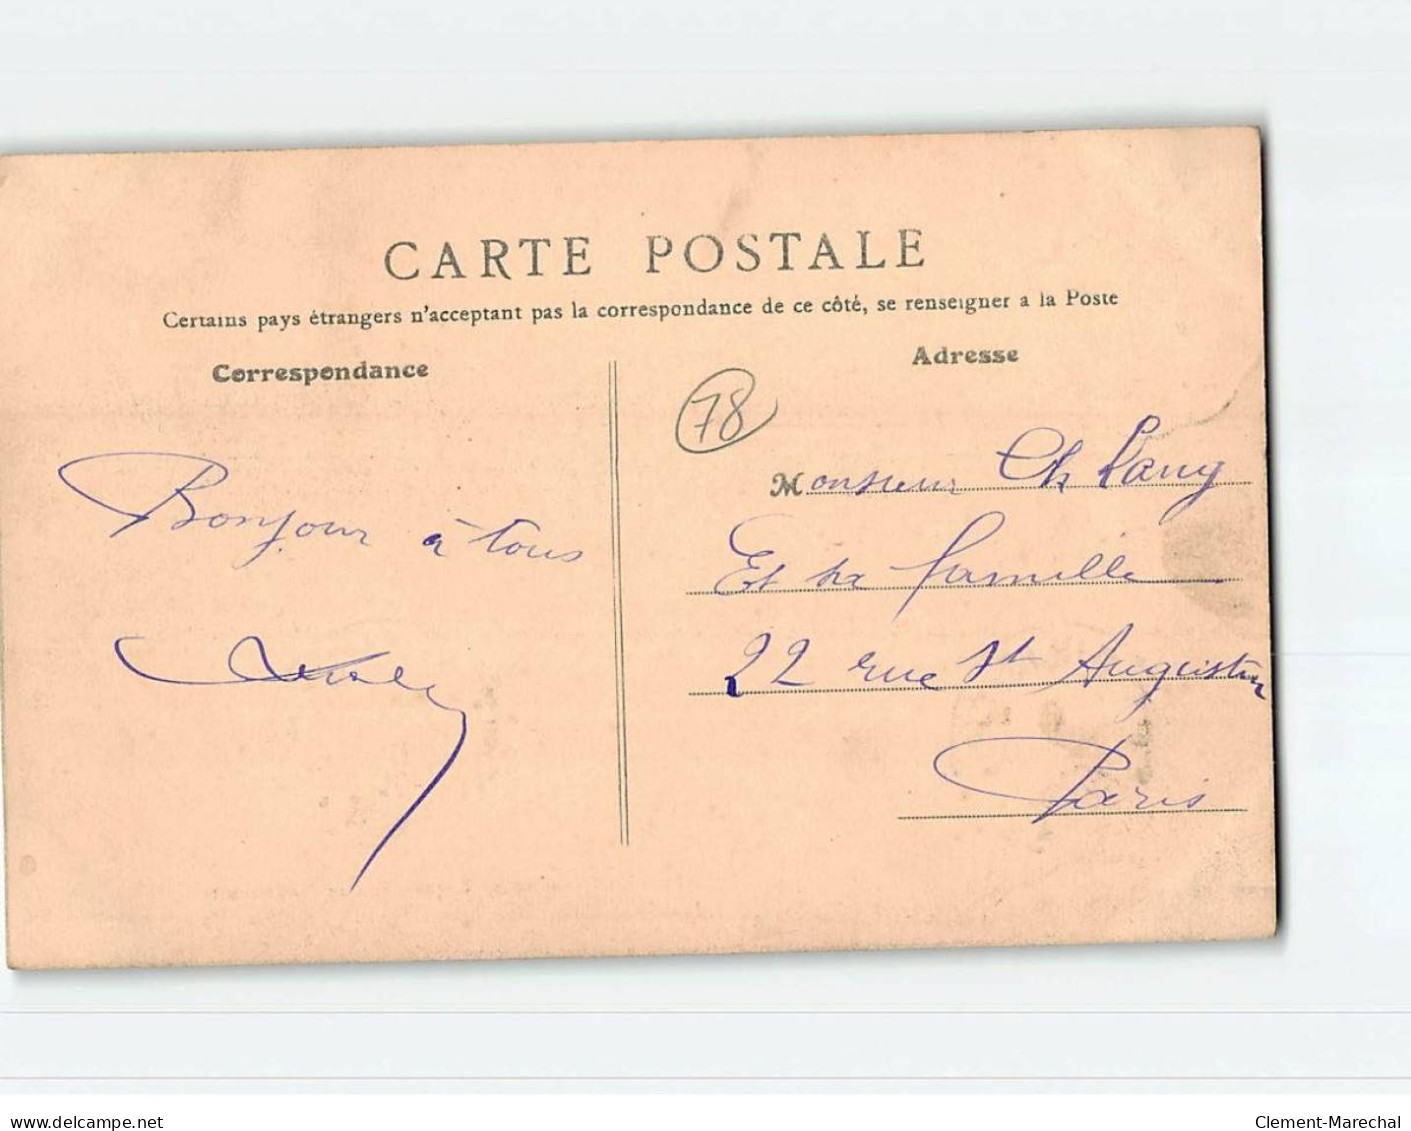 CARTE POSTALE
Certains pays étrangers n'acceptant pas la correspondance de ce côté, se renseigner à la Poste
Correspondance
Adresse
78
Bonjour à tous
Monsieur Ch
Et sa famille
22 rue St Augustin
Paris
www.delcampe.net
Clement-Marechal